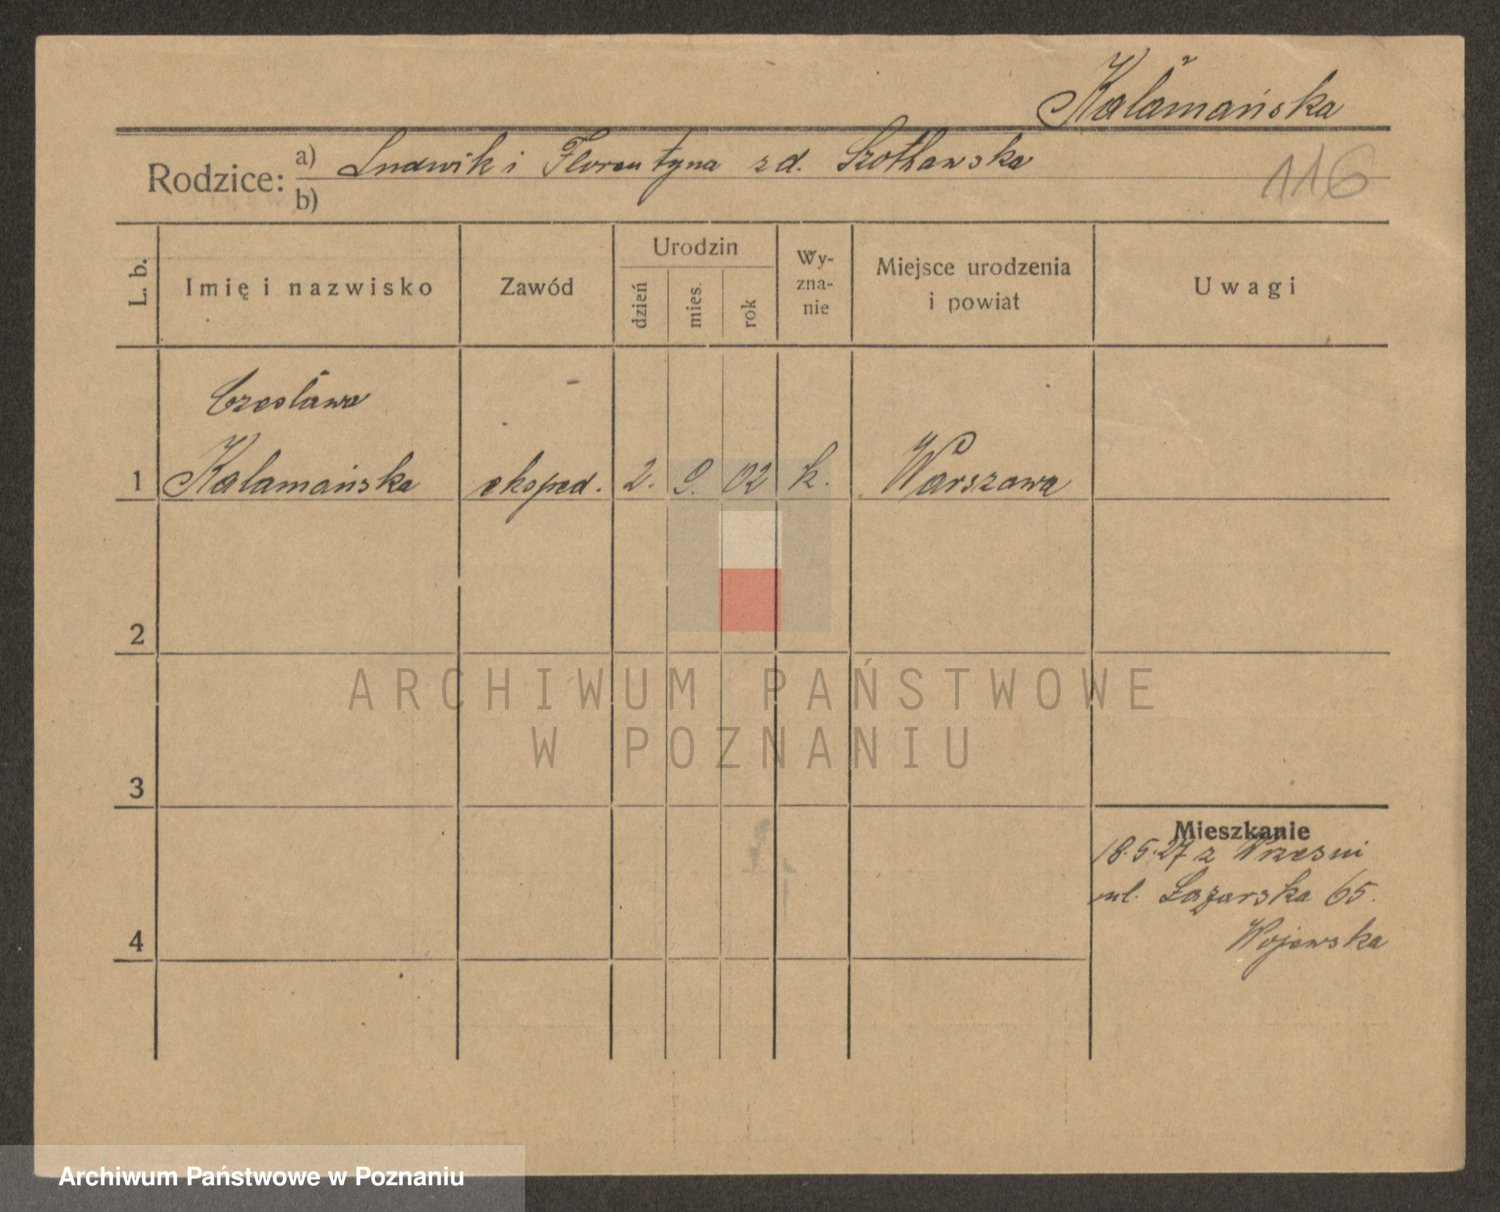 Kałamańska
116
Rodzice: a) Ludwik i Florentyna z d. Szotkowska
b)
L. b. Imię i nazwisko Zawód Urodzin dzień mies. rok Wy-zna-nie Miejsce urodzenia i powiat Uwagi
Czesława
1 Kałamańska eksped. 2. 9. 02 k. Warszawa
2
ARCHIWUM PAŃSTWOWE
W POZNANIU
3
Mieszkanie
18.5.27 z Wrześni
ul. Łazarska 65.
Wojewska
4
Archiwum Państwowe w Poznaniu